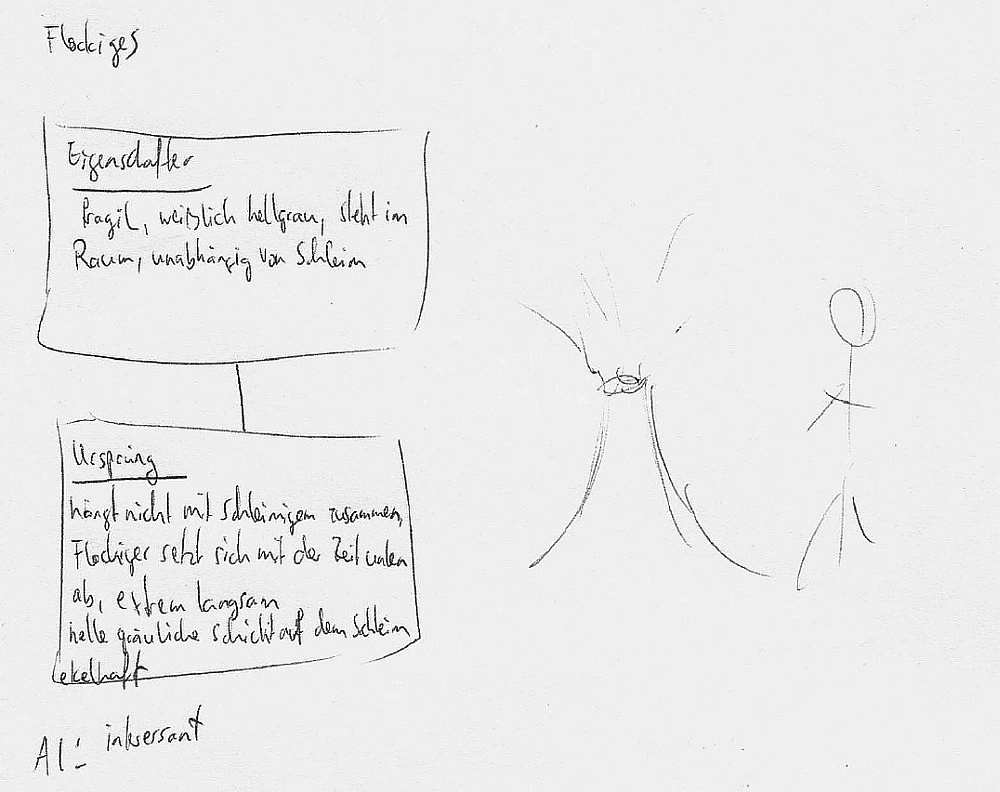 Flockiges
Eigenschaften
fragil, weißlich hellgrau, steht im
Raum, unabhängig von Schleim
Ursprung
hängt nicht mit schleimigem zusammen,
Flockiges setzt sich mit der Zeit unten
ab, extrem langsam
helle gräuliche Schicht auf dem Schleim
ekelhaft
AI: interessant